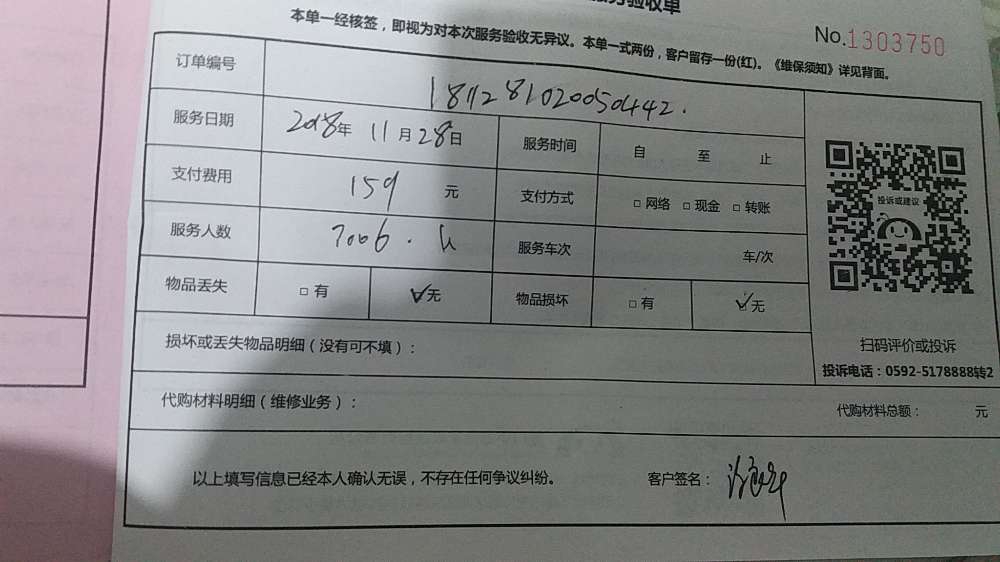 服务验收单
本单一经核签，即视为对本次服务验收无异议。本单一式两份，客户留存一份(红)。《维保须知》详见背面。
No.1303750
订单编号 1811281020050442.
服务日期 2018年 11月28日 服务时间 自 至 止
支付费用 159 元 支付方式 □ 网络 □ 现金 □ 转账
服务人数 7006. 服务车次 车/次
物品丢失 □ 有 ☑无 物品损坏 □ 有 ☑无
损坏或丢失物品明细（没有可不填）：
投诉或建议
扫码评价或投诉
投诉电话：0592-5178888转2
代购材料明细（维修业务）： 代购材料总额： 元
以上填写信息已经本人确认无误，不存在任何争议纠纷。 客户签名：